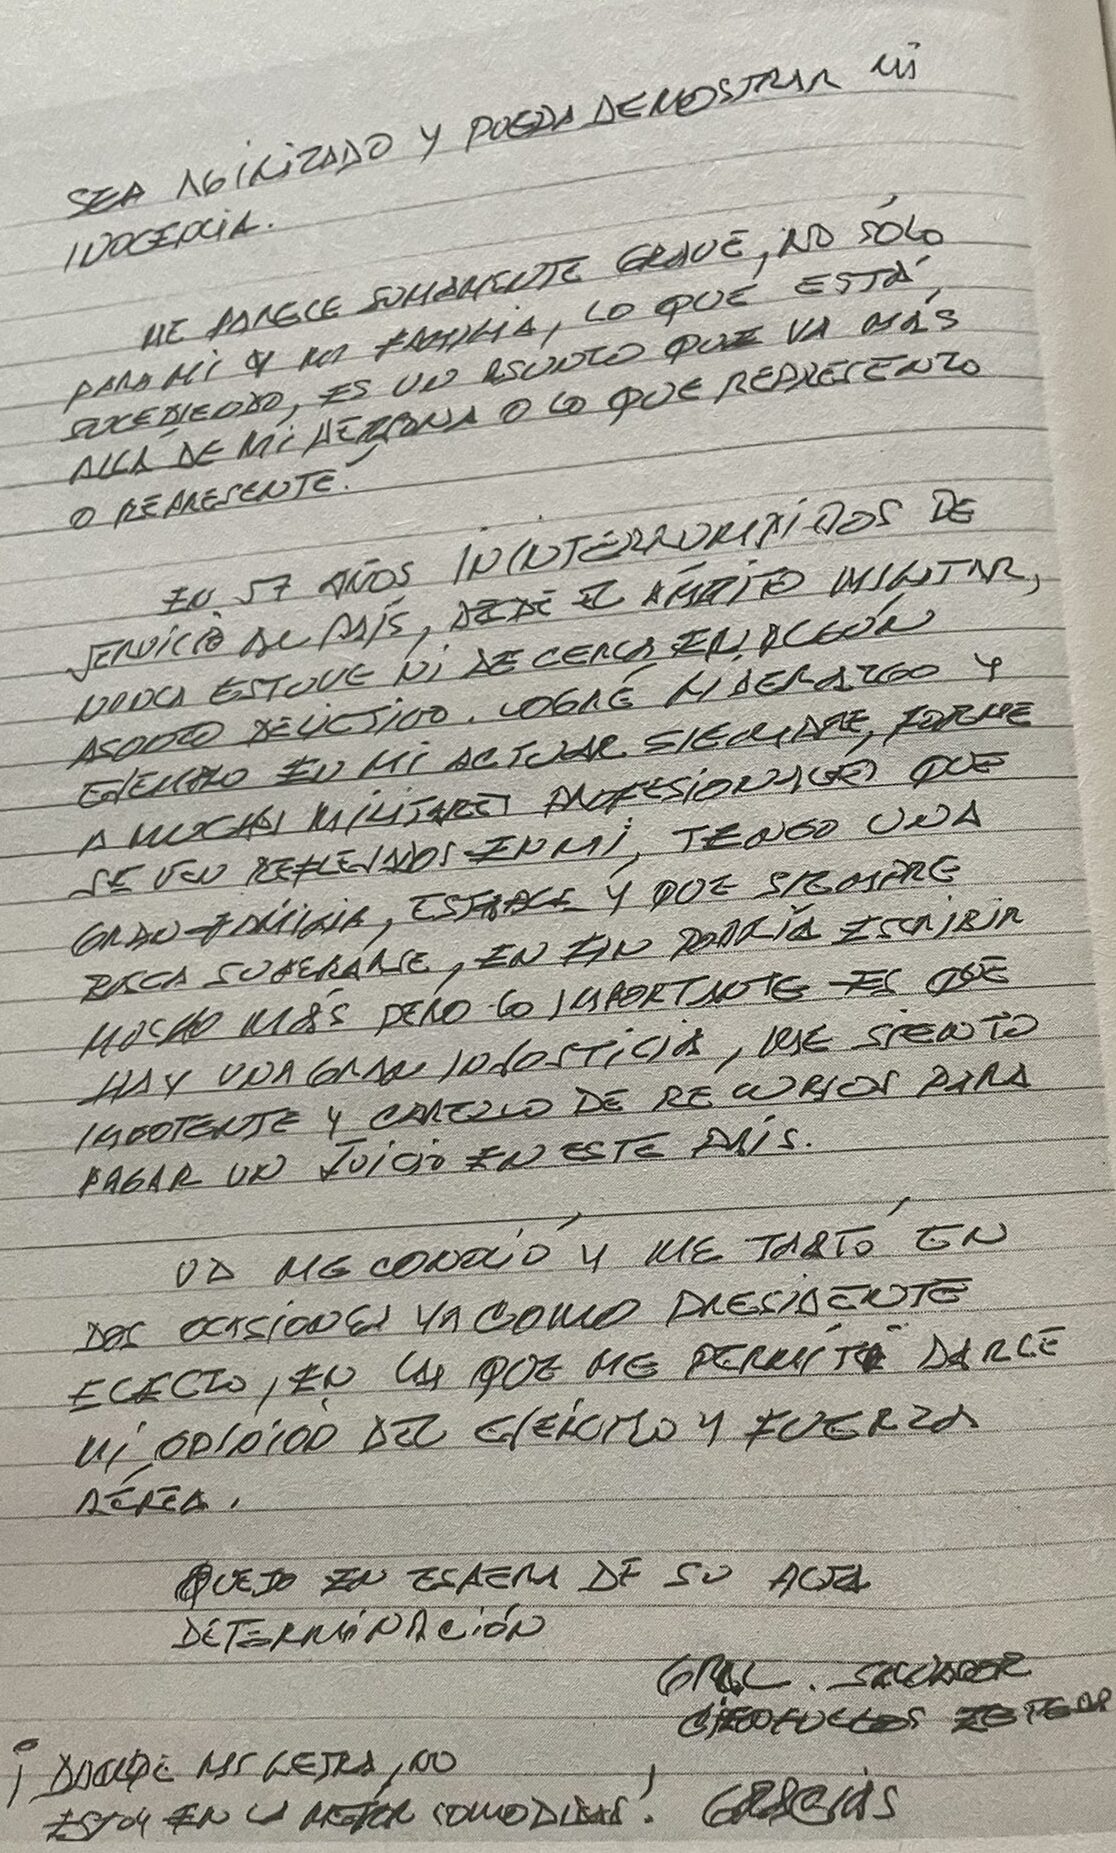 SEA AGILIZADO Y PUEDA DEMOSTRAR MI
INOCENCIA.
ME PARECE SUMAMENTE GRAVE, NO SÓLO
PARA MI Y MI FAMILIA, LO QUE ESTÁ
SUCEDIENDO, ES UN ASUNTO QUE VA MÁS
ALLÁ DE MI PERSONA O LO QUE REPRESENTO
O REPRESENTÉ.
EN 57 AÑOS ININTERRUMPIDOS DE
SERVICIO AL PAÍS, DESDE EL ÁMBITO MILITAR,
NUNCA ESTUVE NI DE CERCA EN ALGÚN
ASUNTO DELICTIVO. LOGRÉ LIDERAZGO Y
EJEMPLO EN MI ACTUAR SIEMPRE, FORMÉ
A MUCHOS MILITARES PROFESIONALES QUE
SE VEN REFLEJADOS EN MI, TENGO UNA
GRAN FAMILIA, ESTABLE Y QUE SIEMPRE
BUSCA SUPERARSE, EN FIN PODRÍA ESCRIBIR
MUCHO MÁS PERO LO IMPORTANTE ES QUE
HAY UNA GRAN INJUSTICIA, ME SIENTO
IMPOTENTE Y CAREZCO DE RECURSOS PARA
PAGAR UN JUICIO EN ESTE PAÍS.
UD ME CONOCIÓ Y ME TRATÓ EN
DOS OCASIONES YA COMO PRESIDENTE
ELECTO, EN LAS QUE ME PERMITÍ DARLE
MI OPINIÓN DEL EJÉRCITO Y FUERZA
AÉREA.
QUEDO EN ESPERA DE SU ALTA
DETERMINACIÓN
GRAL. SALVADOR
CIENFUEGOS ZEPEDA
¡DISCULPE MI LETRA, NO
ESTOY EN LA MEJOR COMODIDAD! GRACIAS